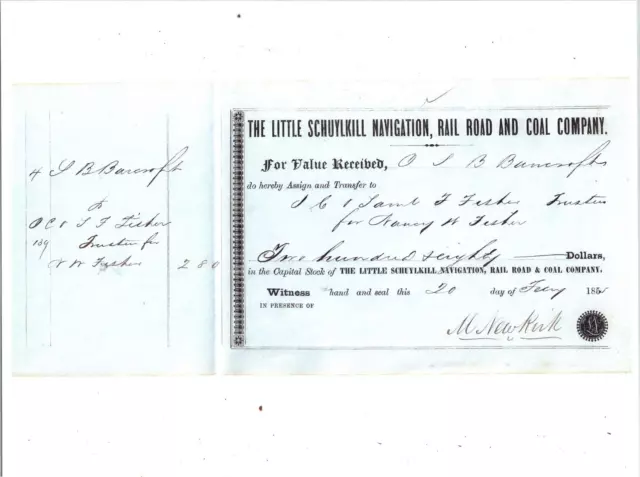 4 S B Bancroft
To
O C & S F Fisher
139 Trustees for
N W Fisher 280
THE LITTLE SCHUYLKILL NAVIGATION, RAIL ROAD AND COAL COMPANY.
For Value Received, S B Bancroft
do hereby Assign and Transfer to
Saml F Fisher Trustees
for Nancy W Fisher
Two hundred & eighty Dollars,
in the Capital Stock of THE LITTLE SCHUYLKILL NAVIGATION, RAIL ROAD & COAL COMPANY.
Witness hand and seal this 20 day of Feby 185
IN PRESENCE OF
M. Newkirk